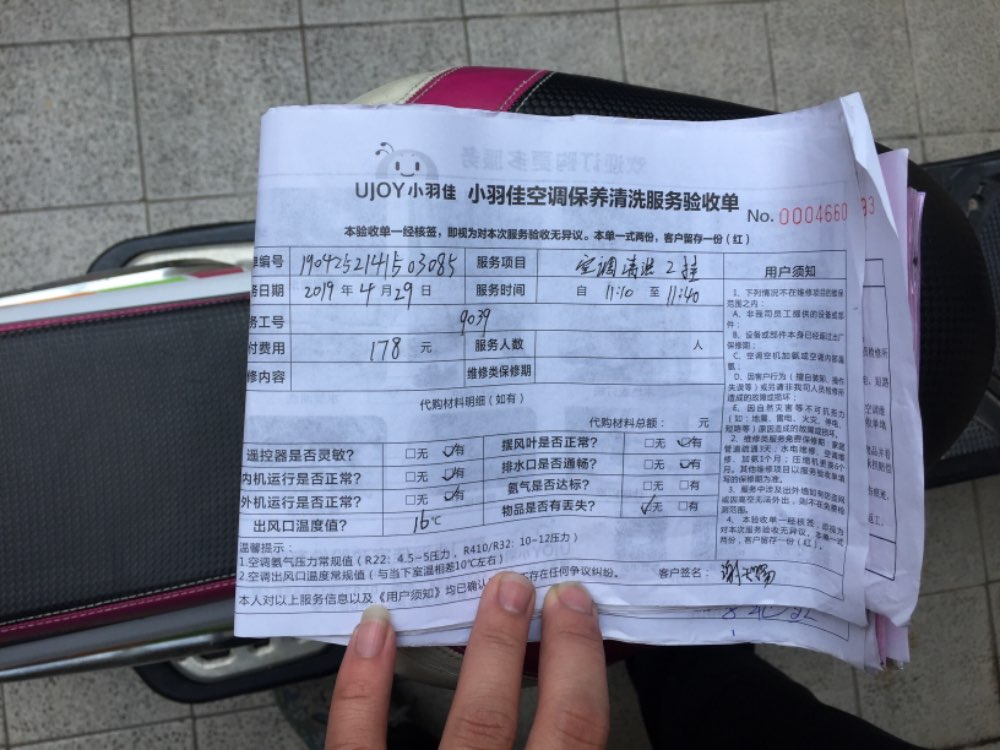 欢迎订购更多服务
UJOY小羽佳 小羽佳空调保养清洗服务验收单
No. 0004660
93
本验收单一经核签，即视为对本次服务验收无异议。本单一式两份，客户留存一份（红）
单编号 1904252141503085 服务项目 空调清洗2挂 用户须知
务日期 2019 年 4 月 29 日 服务时间 自 11:10 至 11:40
务工号 9039
付费用 178 元 服务人数 人
修内容 维修类保修期
代购材料明细（如有）
代购材料总额： 元
遥控器是否灵敏? □无 ☑有 摆风叶是否正常? □无 ☑有
内机运行是否正常? □无 ☑有 排水口是否通畅? □无 ☑有
外机运行是否正常? □无 ☑有 氨气是否达标? □无 □有
出风口温度值? 16℃ 物品是否有丢失? ☑无 □有
1、下列情况不在维修项目的维保
范围之内：
A、非我司员工提供的设备或部
件；
B、设备或部件本身已经超过出厂
保修期；
C、空调空机加氨或空调内部漏
氨；
D、因客户行为（擅自装卸、操作
失误等）或另请非我司人员检修所
造成的故障或损坏；
E、因自然灾害等不可抗拒力
（如：地震、雷电、火灾、停电、
短路等）原因造成的故障或损坏。
2、维修类服务免费保修期：家庭
管道疏通3天；水电维修、空调维
修、加氨3个月；压缩机更换6个
月。其他维修项目以服务验收单填
写的保修期为准。
3、服务中涉及出外墙如有防盗网
或因高空无法外出，则不在免费检
测范围。
4、本验收单一经核签，即视为
对本次服务验收无异议。本单一式
两份，客户留存一份（红）。
温馨提示：
1.空调氨气压力常规值（R22：4.5~5压力，R410/R32：10~12压力）
2.空调出风口温度常规值（与当下室温相差10℃左右）
本人对以上服务信息以及《用户须知》均已确认 存在任何争议纠纷。 客户签名：